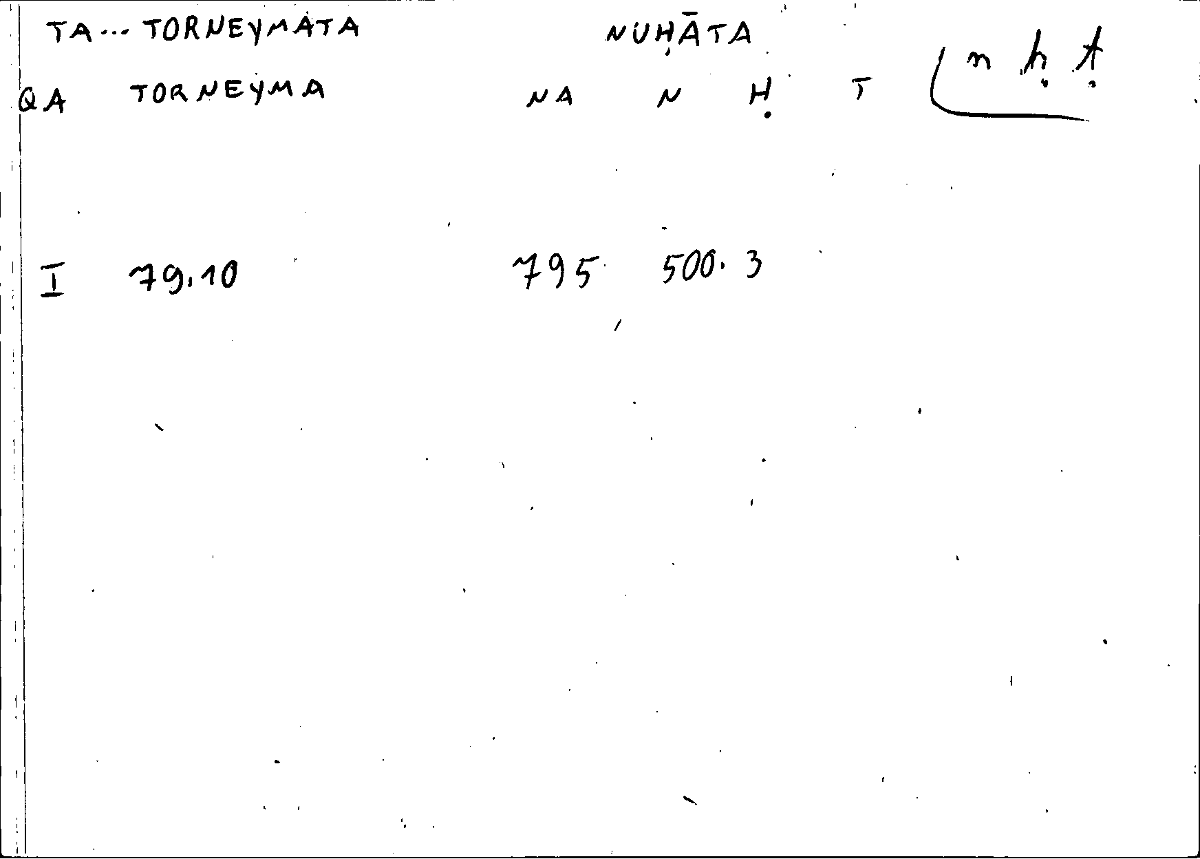 TA... TORNEYMATA NUḤĀTA
QA TORNEYMA NA N Ḥ T n ḥ ṭ
I 79.10 795 500.3